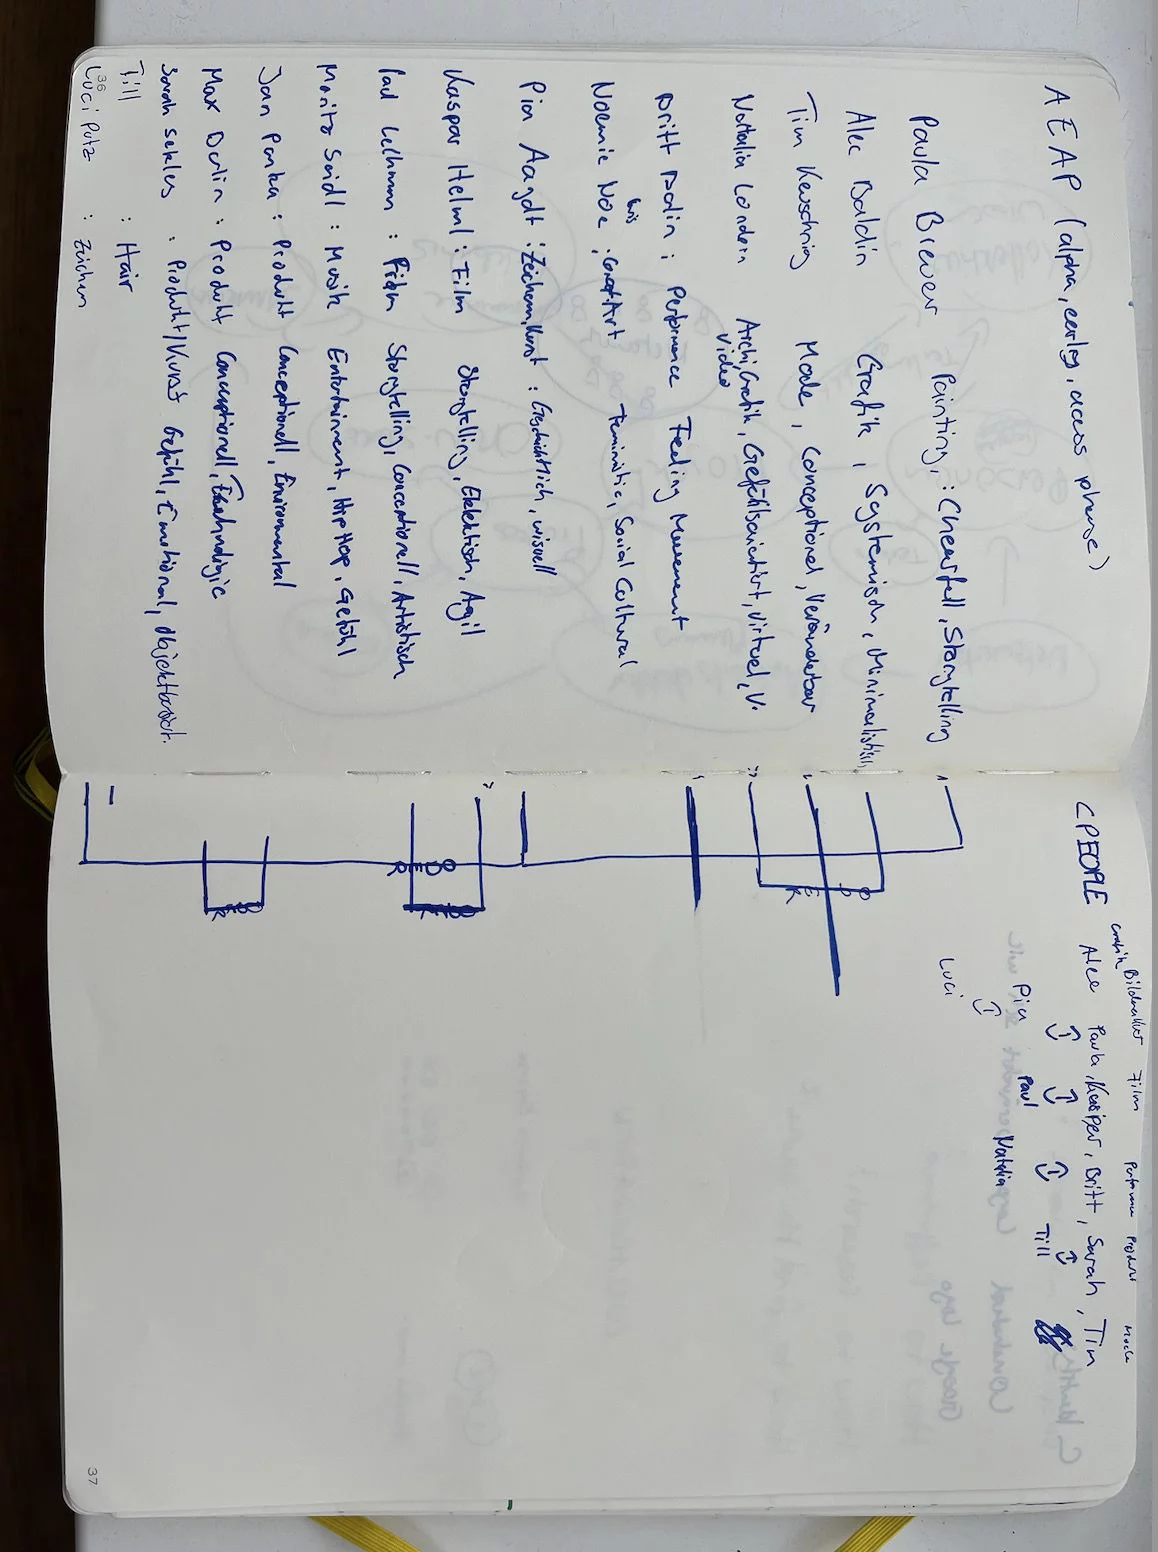 AEAP (alpha, early, access phase)
Paula Brewer Painting, : Chearfull, Storytelling
Alec Baldin Grafik, Systemisch, Minimalistisch
Tim Mode, Conceptionel, Veränderbar
Nathalia Londorn Archi, Grafik, Gefühlsorientiert, virtuel, V.
Video
Britt Dolin : Performence Feeling Movement
Noemie Noe : Concept Art Feministic, Social Cultural
Pia Aagdt : Zeichen, Kunst : Geschichtlich, visuell
Kaspar Helml : Film Storytelling, Elektisch, Agil
Paul Lehmann : Film Storytelling, Conceptionell, Artistisch
Moritz Seidl : Musik Entertainment, HipHop, Gefühl
Jan Panka : Produkt Conceptionell, Enviromental
Max Dulin : Produkt Conceptionell, Technologic
Sarah Sekles : Produkt/Kunst Gefühl, Emotional, objektbasiert.
Till : Hair
Luci Putz : Zeichen
36
PEOPLE
Grafik Bildnerkunst Film Performance Produkt Mode
Alec Paula, Kaspar, Britt, Sarah, Tim
Pia Paul Natalia Till
Luci
B
D
E
R
37